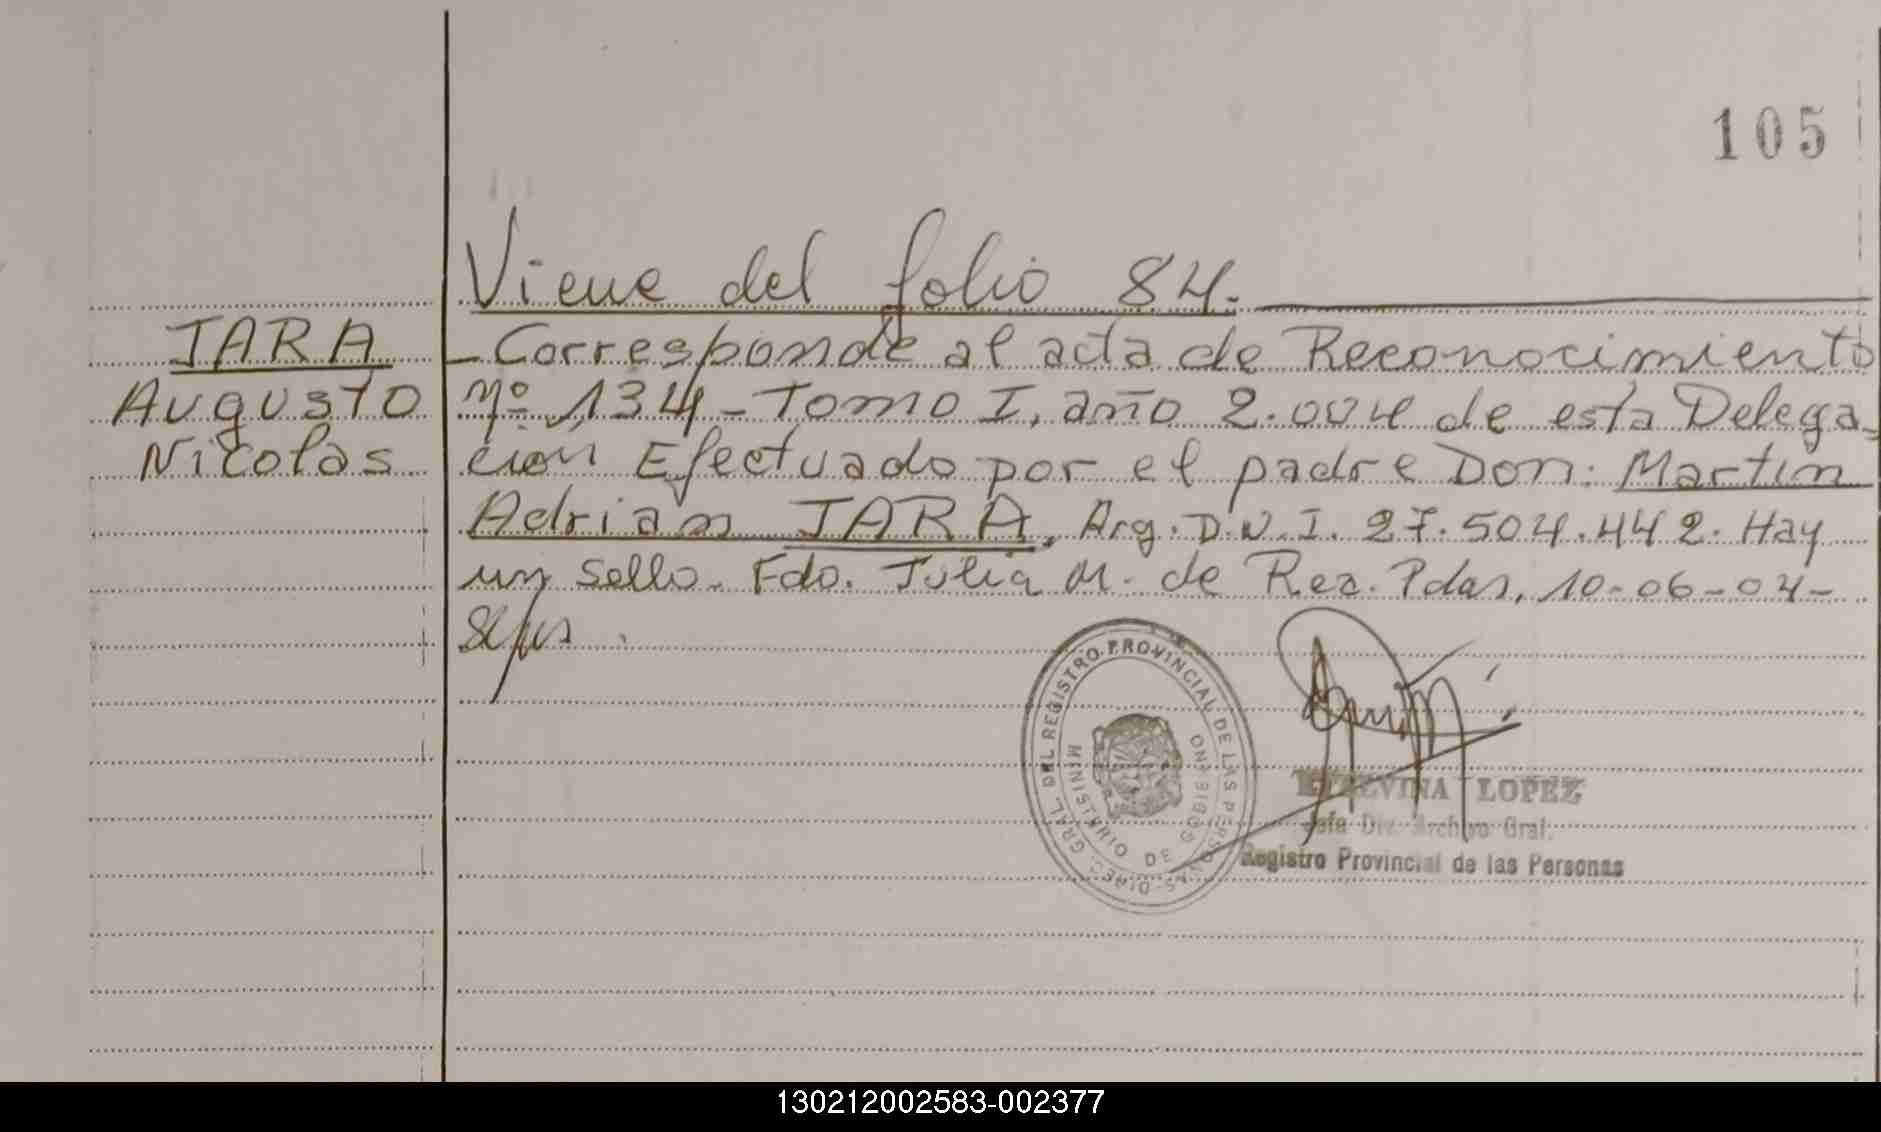 105
Viene del folio 84.
JARA
Augusto
Nicolas
- Corresponde al acta de Reconocimiento
Nº 134 - Tomo I, año 2.004 de esta Delega-
ción Efectuado por el padre Don: Martin
Adrian JARA, Arg. D.N.I. 27.504.442. Hay
un sello. Fdo. Julia M. de Rez. Pdas, 10-06-04-
DIREC. GRAL. DEL REGISTRO PROVINCIAL DE LAS PERSONAS
MINISTERIO DE GOBIERNO
ETELVINA LOPEZ
Jefa Div. Archivo Gral.
Registro Provincial de las Personas
130212002583-002377